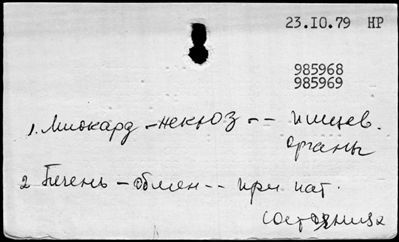 23.IO.79 НР
985968
985969
1. Миокард – некроз -- пищев.
органы
2 Печень – обмен -- при пат.
состояниях